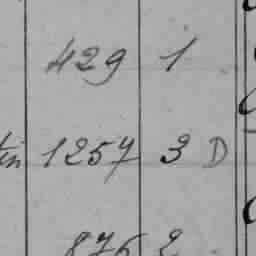 429 1
tin 1257 3 D
876 2